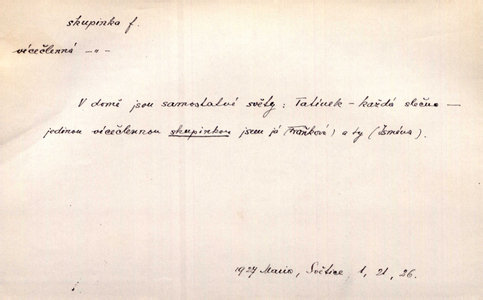 skupinka f.
vícečlenná -"-
V domě jsou samostatné světy: Tatínek - každá slečna -
jedinou vícečlennou skupinkou jsem já (Fraňková) a ty (Isména).
1927 Maria, Světice 1, 21, 26.